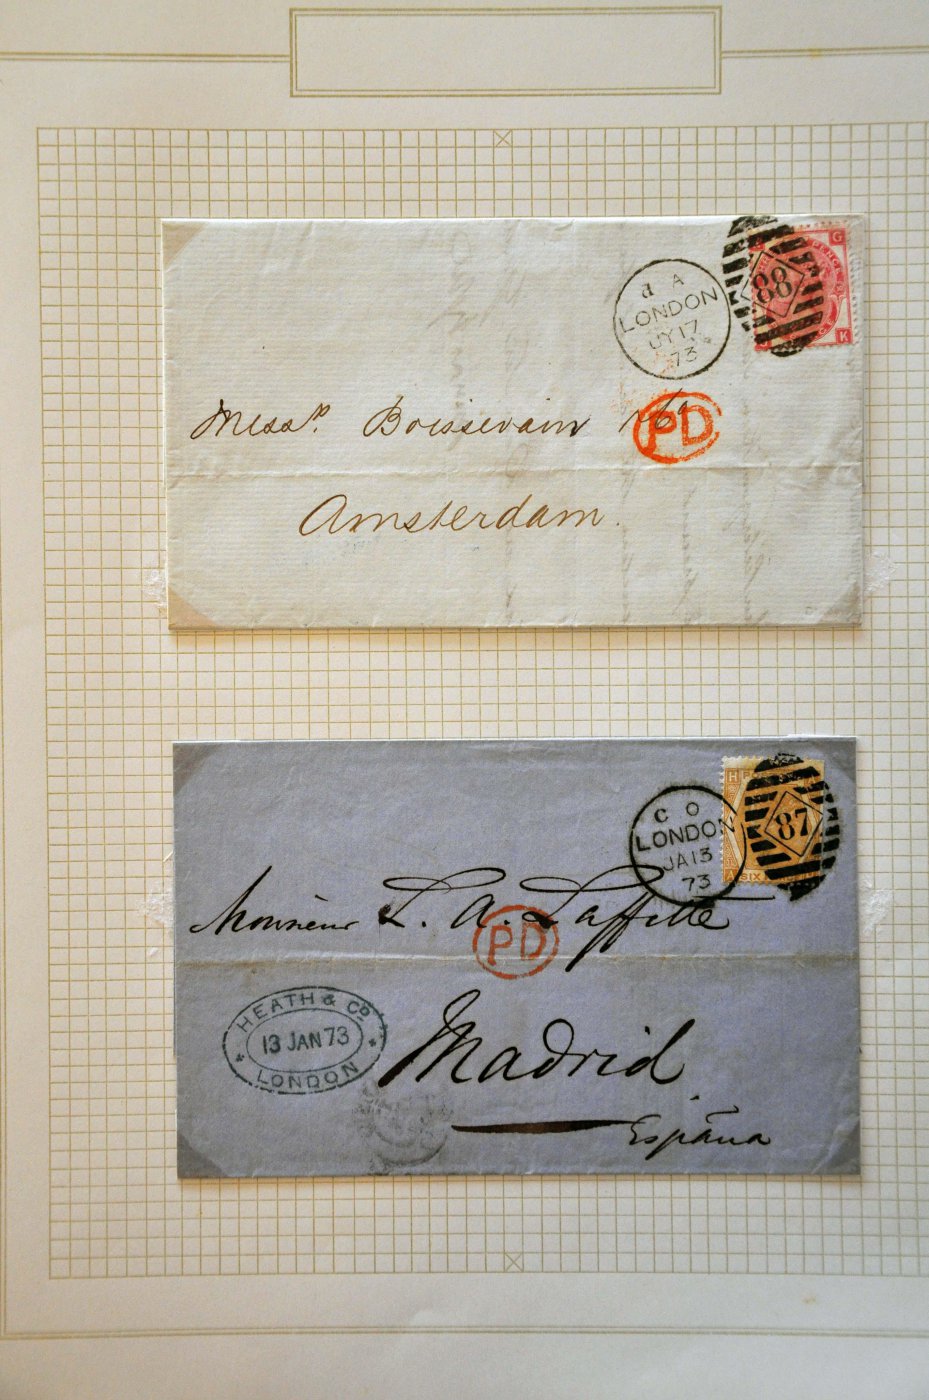 d A
LONDON
JY 17
73
88
G
K
PENCE
PD
Mess.rs Boissevain & Co
Amsterdam.
C O
LONDON
JA 13
73
87
H
A SIX
Monsieur L. A. Laffitte
PD
HEATH & CO
13 JAN 73
LONDON
Madrid
España